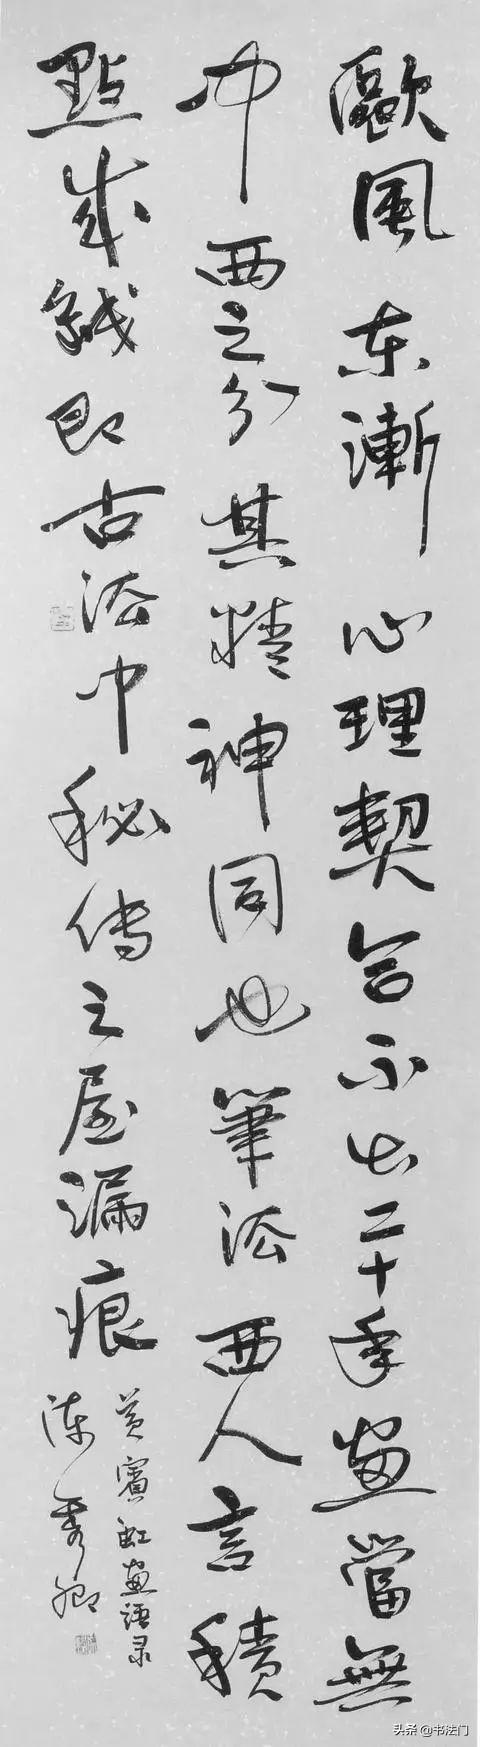 歐風東漸心理契合不出二十年畫當無
中西之分其精神同也筆法西人言積
點成線即古法中秘傳之屋漏痕
黃賓虹畫語录
陳秀卿
头条 @书法门